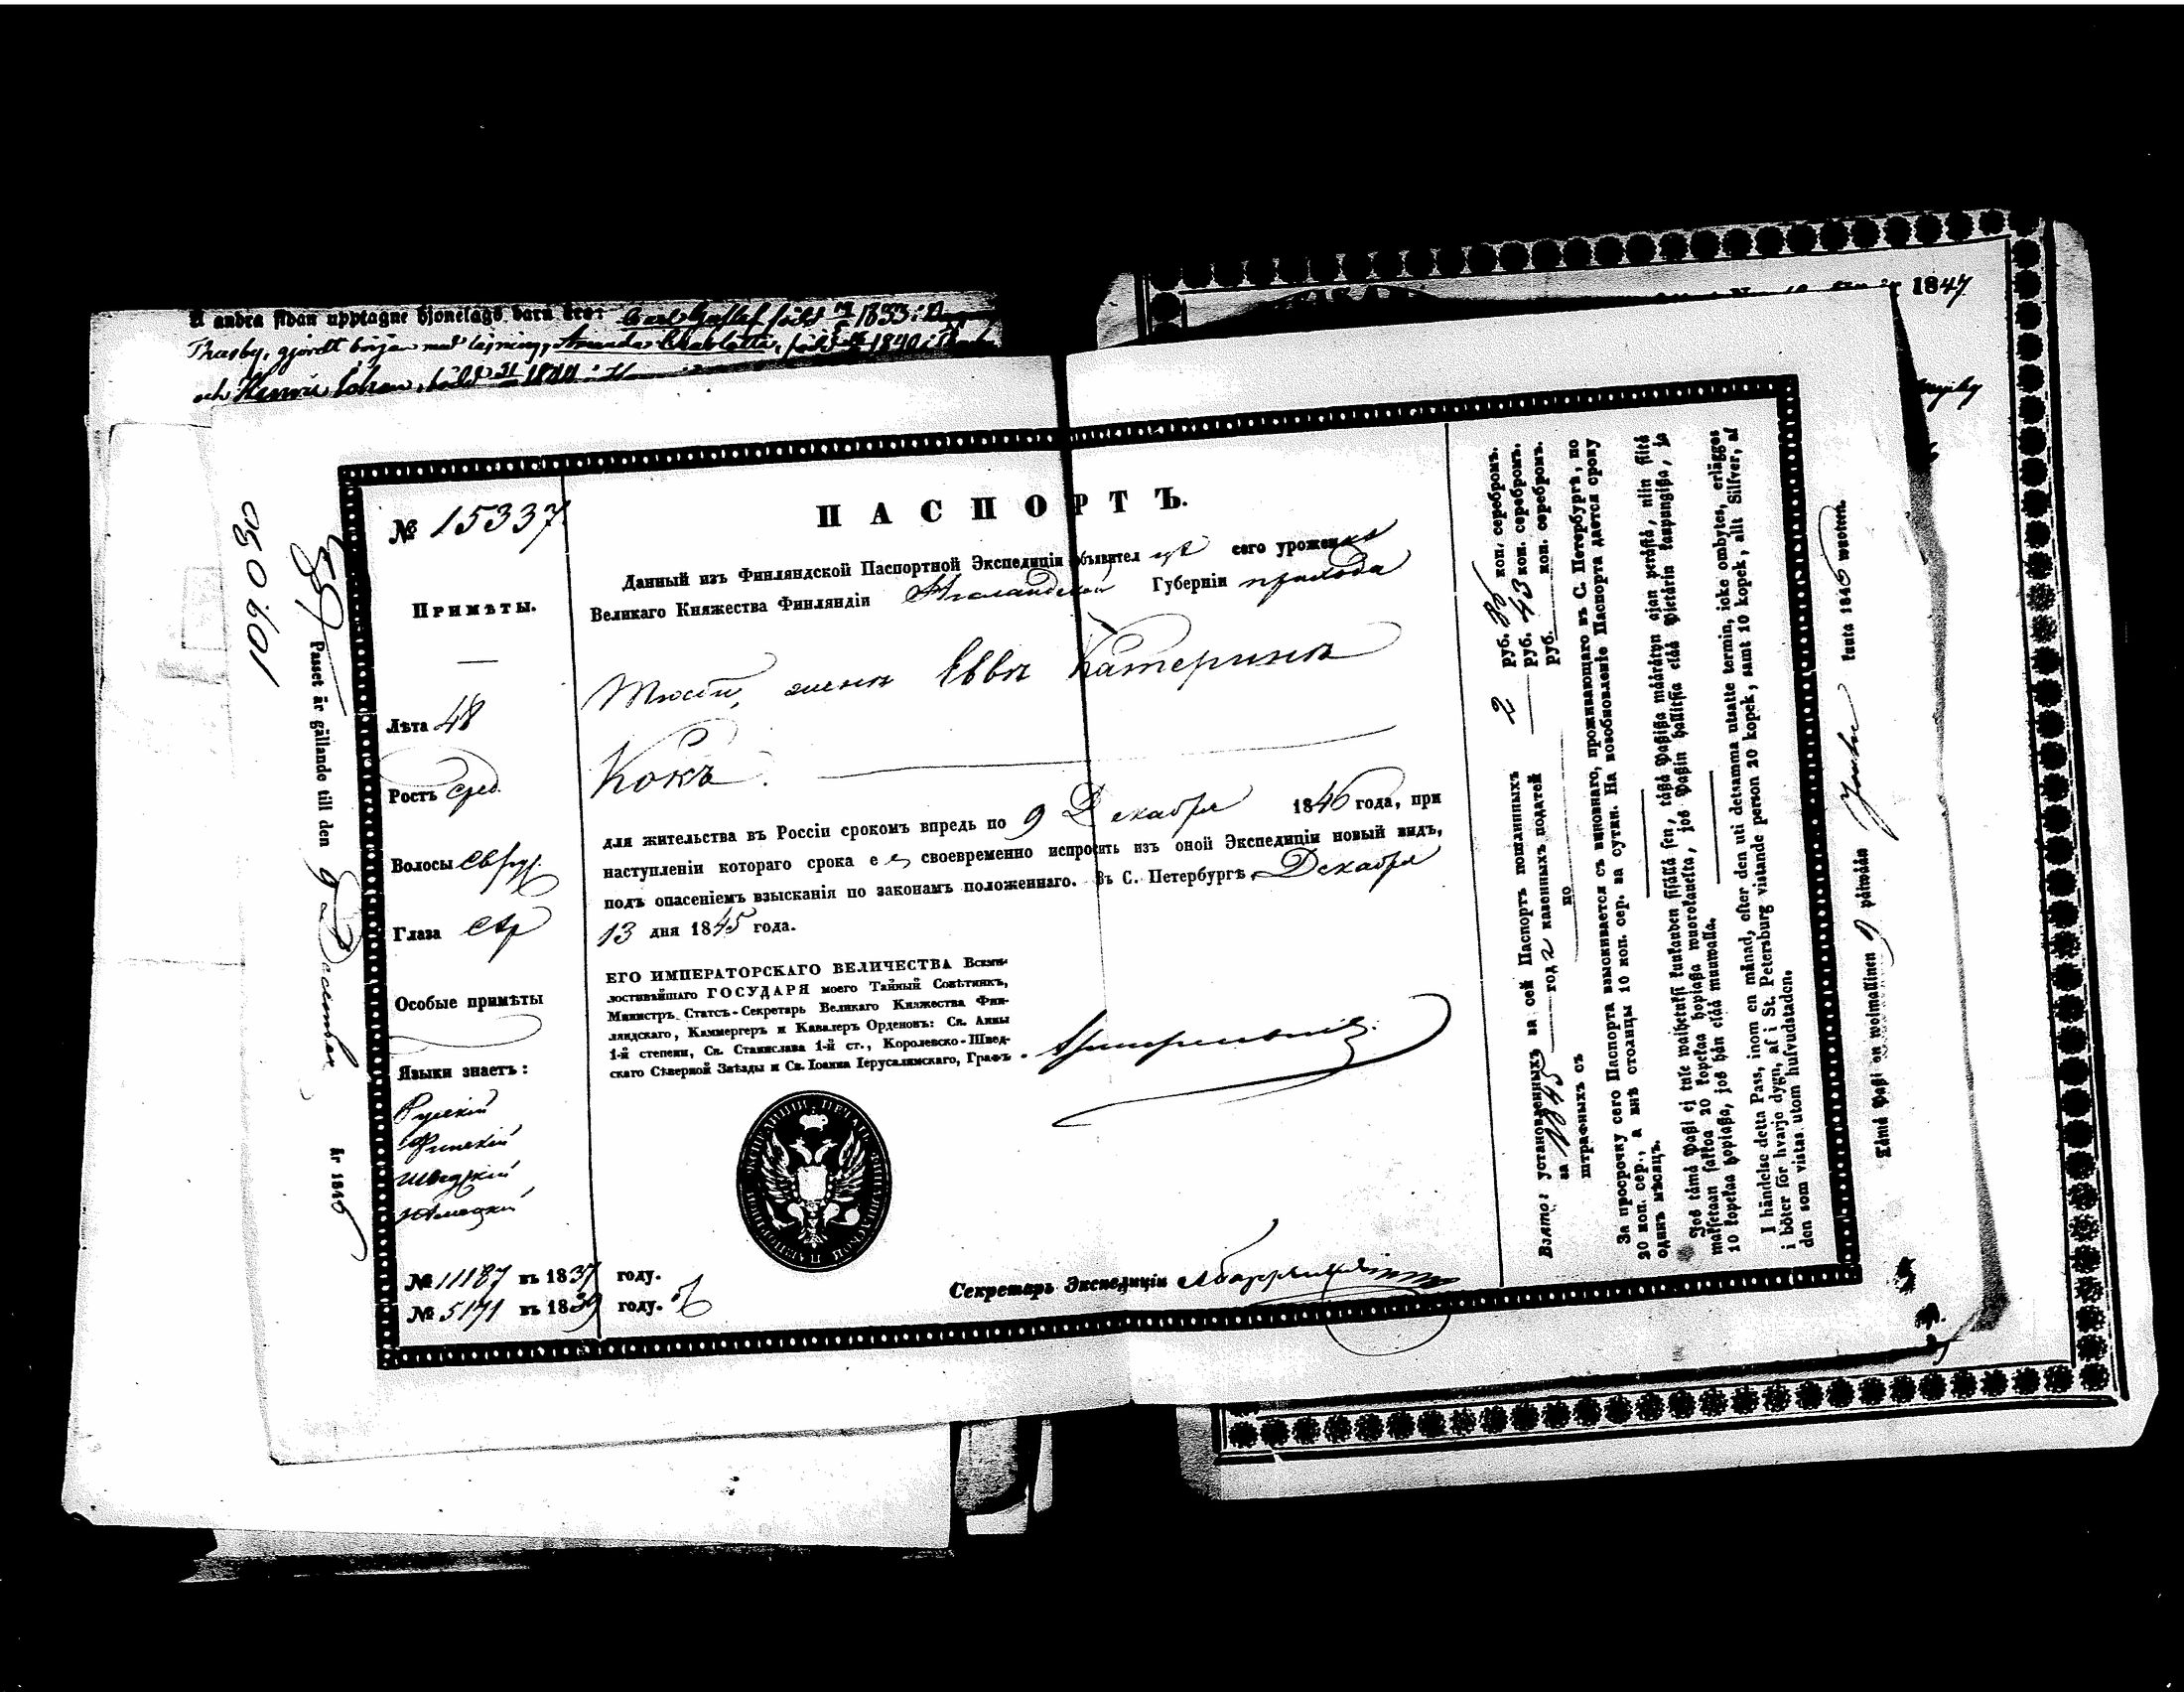 1847
å andra sidan upptagne hjonelags barn äro: Carl Gustaf född 1833 i
Thusby, gjordt början med läsning, Amanda Charlotta, född 1840 i
och född 31
10690
Passet är gällande till den 9 December år 1846
№ 15337
Примѣты.
Лѣта 48
Ростъ сред.
Волосы св. рус.
Глаза сѣр
Особые примѣты
Языки знаетъ:
Русскій
Финскій
Шведскій
Нѣмецкій
№ 11187 въ 1837 году.
№ 5171 въ 1839 году.
ПАСПОРТЪ.
Данный изъ Финляндской Паспортной Экспедиціи объявительницѣ сего уроженкѣ
Великаго Княжества Финляндіи Нюландской Губерніи прихода
женѣ Еввѣ Катеринѣ
Кокъ.
для жительства въ Россіи срокомъ впредь по 9 Декабря 1846 года, при
наступленіи котораго срока ей своевременно испросить изъ оной Экспедиціи новый видъ,
подъ опасеніемъ взысканія по законамъ положеннаго. Въ С. Петербургѣ, Декабря
13 дня 1845 года.
ЕГО ИМПЕРАТОРСКАГО ВЕЛИЧЕСТВА Всеми-
лостивѣйшаго ГОСУДАРЯ моего Тайный Совѣтникъ,
Министръ Статсъ-Секретарь Великаго Княжества Фин-
ляндскаго, Каммергеръ и Кавалеръ Орденовъ: Св. Анны
1-й степени, Св. Станислава 1-й ст., Королевско-Швед-
скаго Сѣверной Звѣзды и Св. Іоанна Іерусалимскаго, Графъ
Секретарь Экспедиціи
Взято: установленныхъ за сей Паспортъ пошлинныхъ 2 руб. коп. серебромъ.
за 1845 год казенныхъ податей руб. 43 коп. серебромъ.
штрафныхъ съ по руб. коп. серебромъ.
За просрочку сего Паспорта взыскивается съ виновнаго, проживающаго въ С. Петербургѣ, по
20 коп. сер., а внѣ столицы 10 коп. сер. за сутки. На возобновленіе Паспорта дается сроку
одинъ мѣсяцъ.
Jos tämä Passi ej tule waihetuksi kuukauden sisällä sen, tässä Passissa määrätyn ajan perästä, niin siitä
maksetaan sakkoa 20 kopekaa hopiassa wuorokauelta, jos Passin hallitsia elää Pietarin kaupungissa, ja
10 kopekaa hopiassa, jos hän elää muuwalla.
I händelse detta Pass, inom en månad, efter den uti detsamma utsatte termin, icke ombytes, erlägges
i böter för hvarje dygn, af i St. Petersburg vistande person 20 kopek, samt 10 kopek, allt Silfver, af
den som vistas utom hufvudstaden.
Tämä Passi on woimallinen 9 päiwään Joulu kuuta 1846 wuoteen.